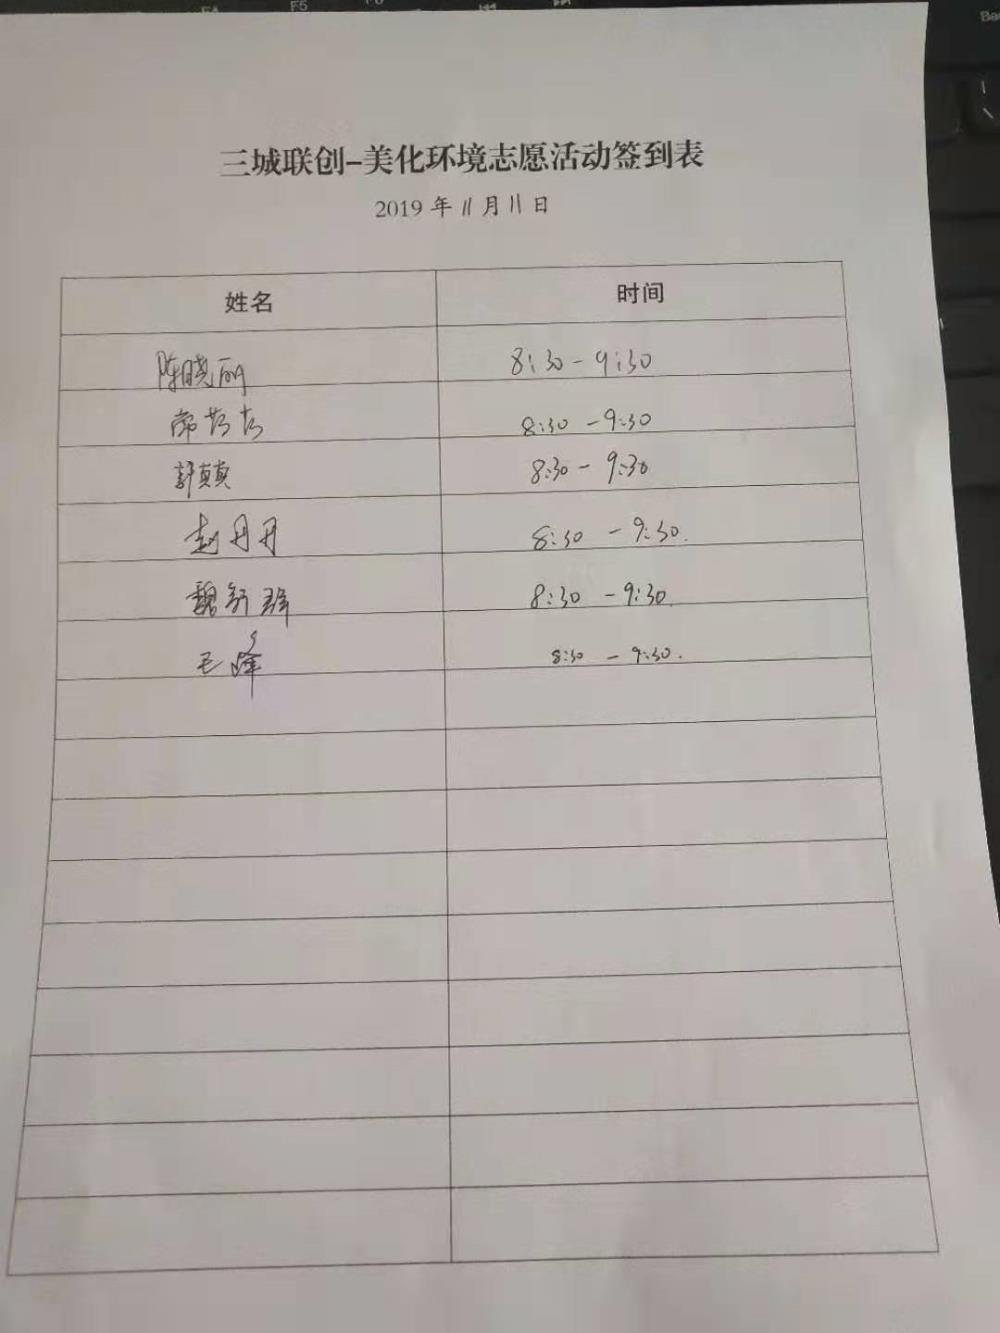 三城联创-美化环境志愿活动签到表
2019 年 11 月 11 日
姓名 时间
陈晓丽 8:30-9:30
8:30-9:30
舒真真 8:30-9:30
赵丹丹 8:30-9:30.
魏 8:30-9:30.
毛峰 8:30-9:30.